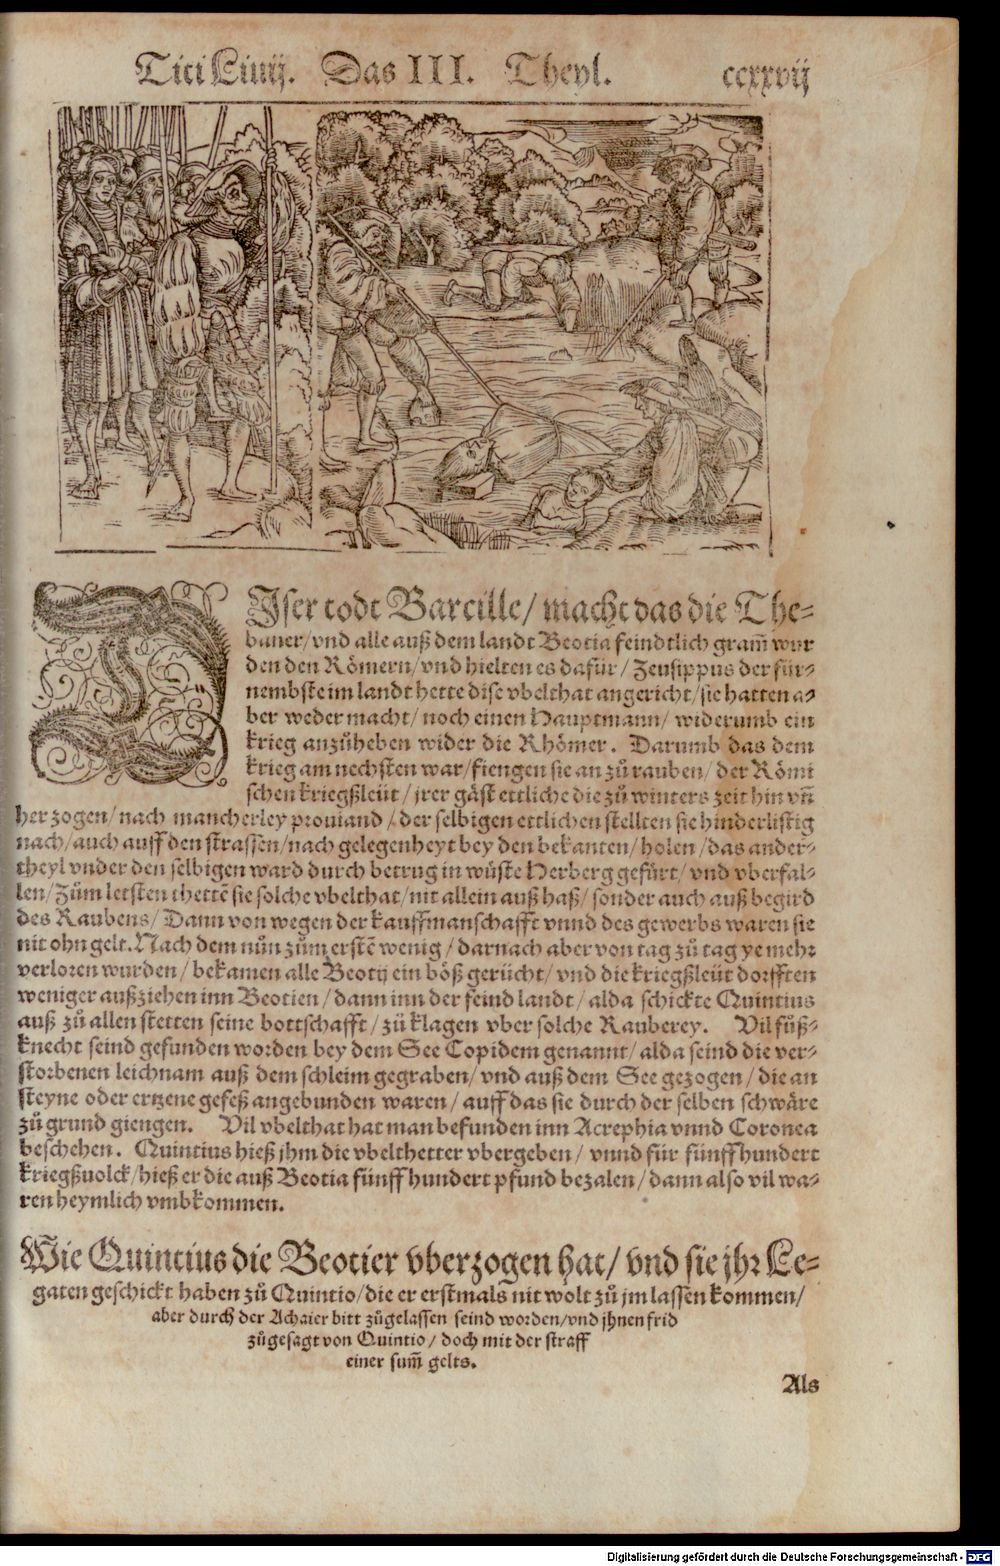 Titi Liuij. Das III. Theyl. ccxxvij
DIser todt Barcille / macht das die The⸗
baner / vnd alle auß dem landt Beotia feindtlich gram̃ wur
den den Römern / vnd hielten es dafür / Zeusippus der für⸗
nembste im landt hette dise vbelthat angericht / sie hatten a⸗
ber weder macht / noch einen Hauptmann / widerumb ein
krieg anzůheben wider die Rhömer. Darumb das dem
krieg am nechsten war / fiengen sie an zů rauben / der Römi
schen kriegßleüt / jrer gäst ettliche die zů winters zeit hin vñ
her zogen / nach mancherley prouiand / der selbigen ettlichen stellten sie hinderlistig
nach / auch auff den strassen / nach gelegenheyt bey den bekanten / holen / das ander⸗
theyl vnder den selbigen ward durch betrug in wüste Herberg gefürt / vnd vberfal⸗
len / Zům letsten thettẽ sie solche vbelthat / nit allein auß haß / sonder auch auß begird
des Raubens / Dann von wegen der kauffmanschafft vnnd des gewerbs waren sie
nit ohn gelt. Nach dem nůn zům erstẽ wenig / darnach aber von tag zů tag ye mehr
verloren wurden / bekamen alle Beotij ein böß gerücht / vnd die kriegßleüt dorfften
weniger außziehen inn Beotien / dann inn der feind landt / alda schickte Quintius
auß zů allen stetten seine bottschafft / zů klagen vber solche Rauberey. Vil fůß⸗
knecht seind gefunden worden bey dem See Copidem genannt / alda seind die ver⸗
storbenen leichnam auß dem schleim gegraben / vnd auß dem See gezogen / die an
steyne oder ertzene gefeß angebunden waren / auff das sie durch der selben schwäre
zů grund giengen. Vil vbelthat hat man befunden inn Acrephia vnnd Coronea
beschehen. Quintius hieß jhm die vbelthetter vbergeben / vnnd für fünffhundert
kriegßuolck / hieß er die auß Beotia fünffhundert pfund bezalen / dann also vil wa⸗
ren heymlich vmbkommen.
Wie Quintius die Beotier vberzogen hat / vnd sie jhr Le⸗
gaten geschickt haben zů Quintio / die er erstmals nit wolt zů jm lassen kommen /
aber durch der Achaier bitt zůgelassen seind worden / vnd jhnen frid
zůgesagt von Quintio / doch mit der straff
einer sum̃ gelts.
Als
Digitalisierung gefördert durch die Deutsche Forschungsgemeinschaft - DFG